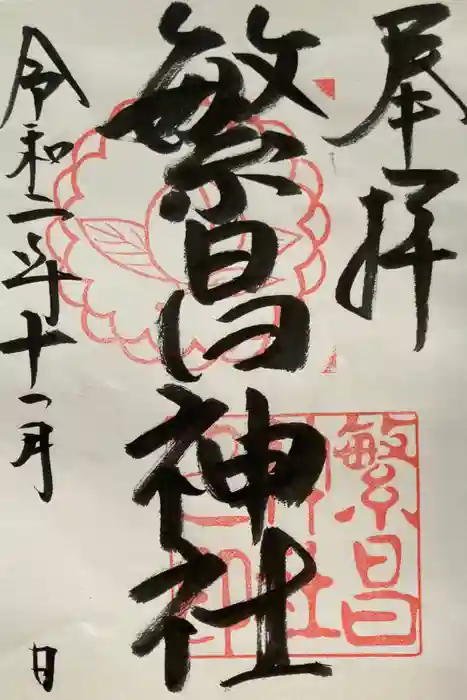 奉拝
繁昌神社
繁昌
神社
之印
令和二年十一月
日